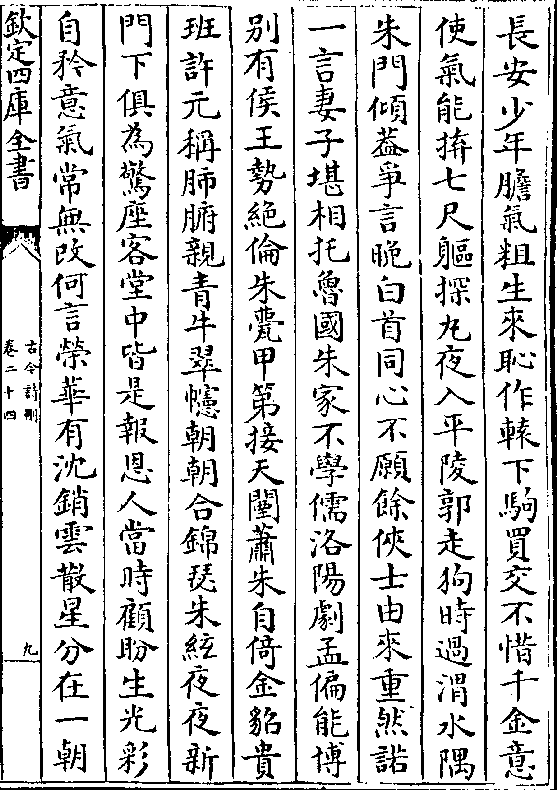 長安少年膽氣粗生來恥作轅下駒買交不惜千金意
使氣能拚七尺軀探丸夜入平陵郭走狗時過渭水隅
朱門傾蓋爭言晚白首同心不願餘俠士由來重然諾
一言妻子堪相托魯國朱家不學儒洛陽劇孟偏能博
別有侯王勢絶倫朱甍甲第接天闉蕭朱自倚金貂貴
班許元稱肺腑親青牛翠幰朝朝合錦瑟朱絃夜夜新
門下俱為驚座客堂中皆是報恩人當時顧盼生光彩
自矜意氣常無改何言榮華有沈銷雲散星分在一朝
欽定四庫全書
古今詩刪
卷二十四
九